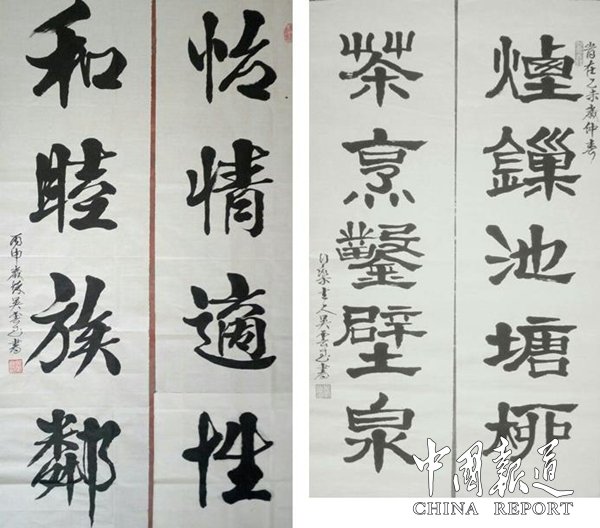 怡情適性
和睦族鄰
丙申
旹在乙未歲仲春
煙鏁池塘柳
茶烹鑿壁泉
中國報道
CHINA REPORT